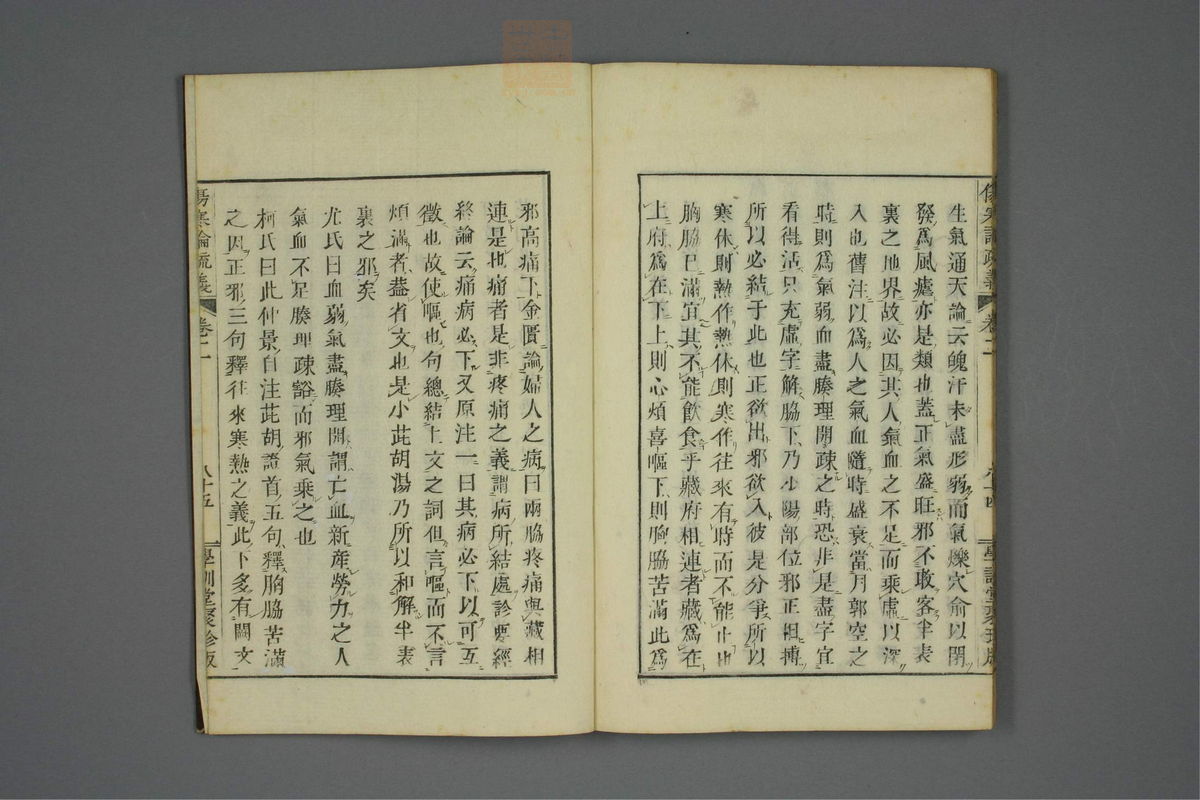 生氣通天論云魄汗未盡形弱而氣爍穴俞以閉
發爲風瘧亦是類也蓋正氣盛旺邪不敢客半表
裏之地界故必因其人氣血之不足而乘虛以深
入也舊注以爲人之氣血隨時盛衰當月郭空之
時則爲氣弱血盡腠理開疎之時恐非是盡字宜
看得活只充虛字解脇下乃少陽部位邪正相搏
所以必結于此也正欲出邪欲入彼是分爭所以
寒休則熱作熱休則寒作往來有時而不能止也
胸脇已滿宜其不能飮食乎藏府相連者藏爲在
上府爲在下上則心煩喜嘔下則胸脇苦滿此爲
傷寒論疏義 卷二 八十四 學訓堂聚珍版
邪高痛下金匱論婦人之病曰兩脇疼痛與藏相
連是也痛者是非疼痛之義謂病所結處診要經
終論云痛病必下又原注一曰其病必下以可互
徵也故使嘔也句總結上文之詞但言嘔而不言
煩滿者蓋省文也是小茈胡湯乃所以和解半表
裏之邪矣
尤氏曰血弱氣盡腠理開謂亡血新産勞力之人
氣血不足腠理疎豁而邪氣乘之也
柯氏曰此仲景自注茈胡證首五句釋胸脇苦滿
之因正邪三句釋往來寒熱之義此下多有闕文
傷寒論疏義 卷二 八十五 學訓堂聚珍版